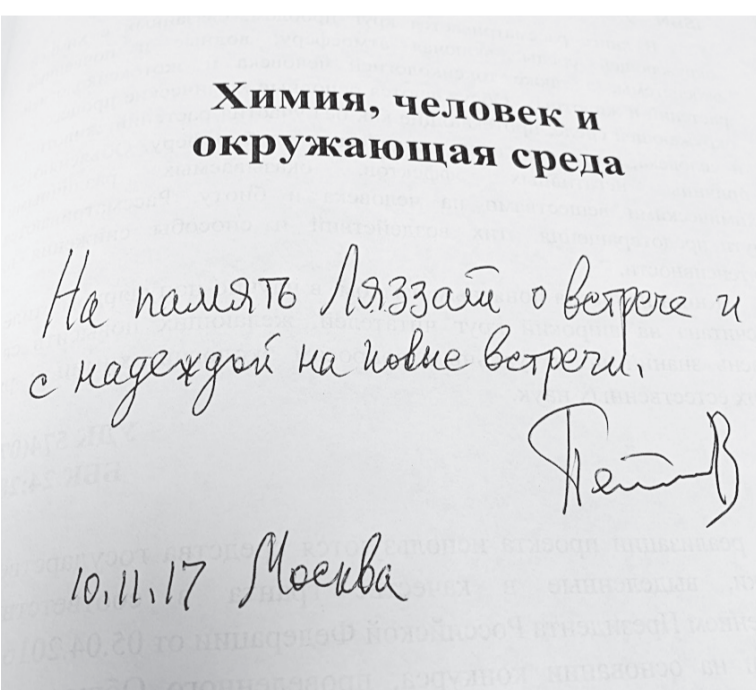 Химия, человек и
окружающая среда
На память Ляззат о встрече и
с надеждой на новые встречи.
10.11.17 Москва